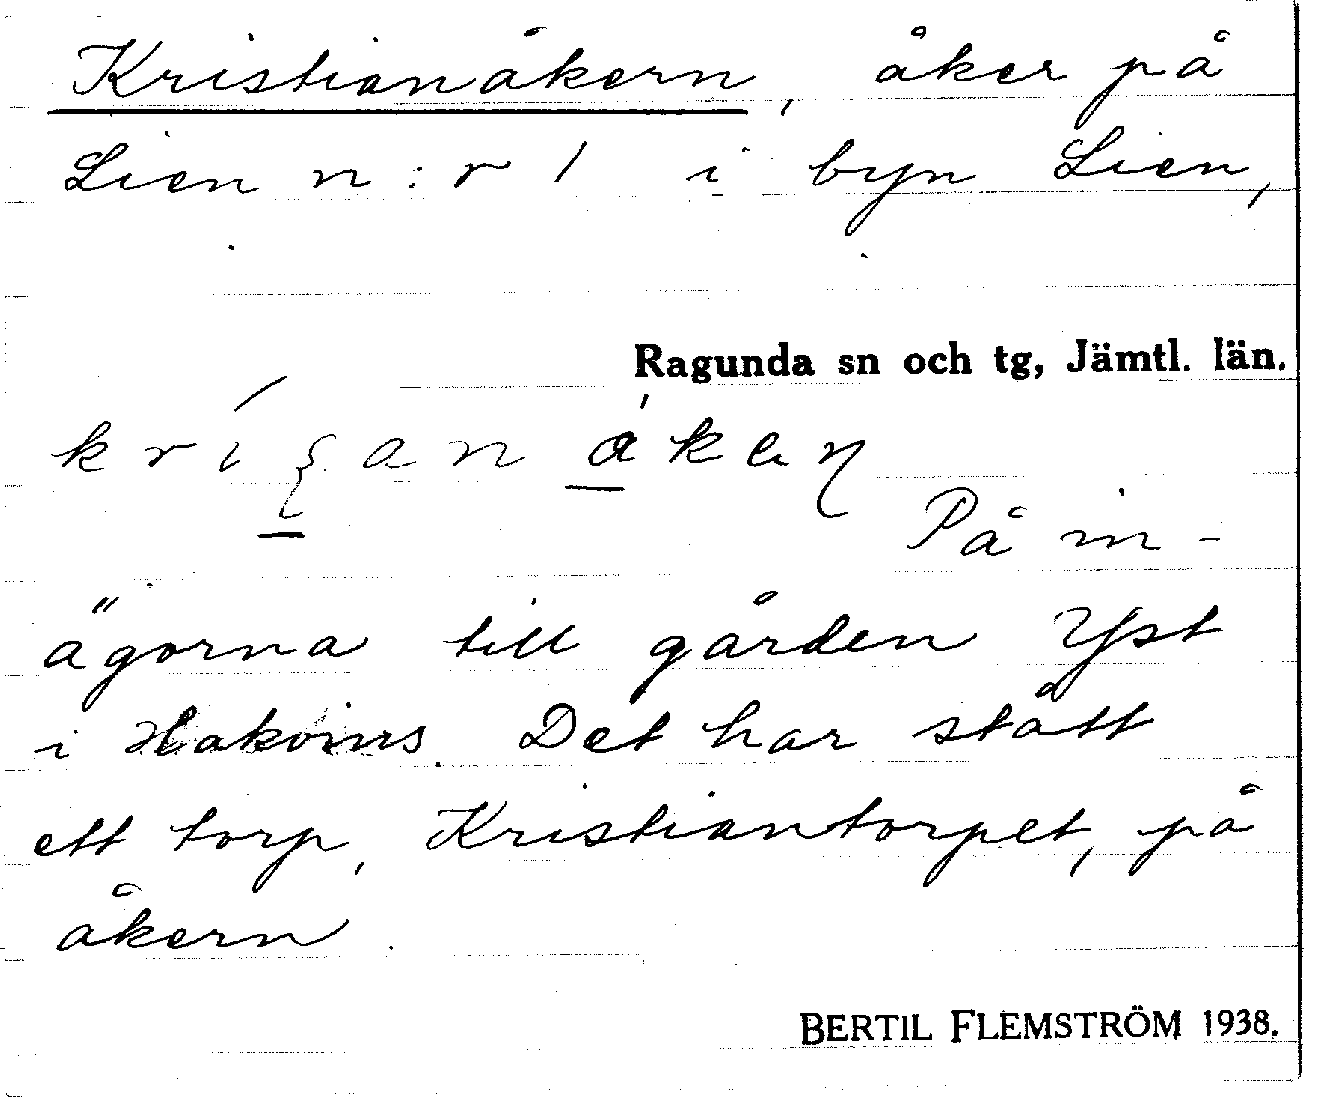 Kristianåkern, åker på
Lien n:r 1 i byn Lien,
Ragunda sn och tg, Jämtl. län.
På in-
ägorna till gården Yst
i Hakvins. Det har stått
ett torp, Kristiantorpet, på
åkern.
BERTIL FLEMSTRÖM 1938.